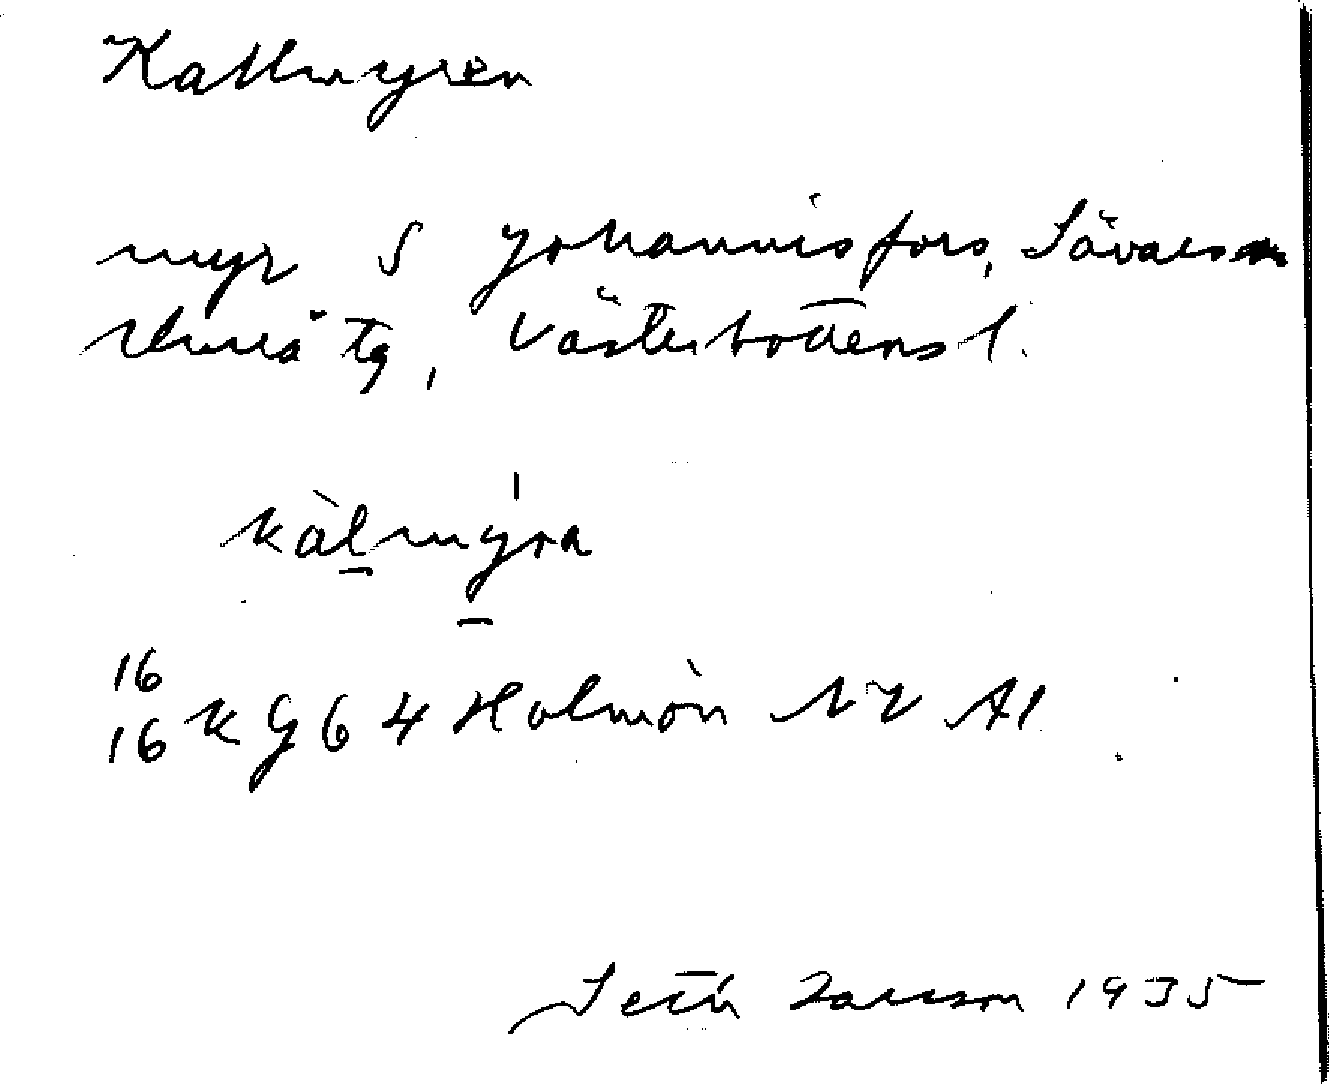 Kallmyren
myr S Johannisfors, Sävar sn
Umeå tg, Västerbottens l.
kàlmýra
16
16 K G 6 4 Holmön NV A1
Seth Larsson 1935